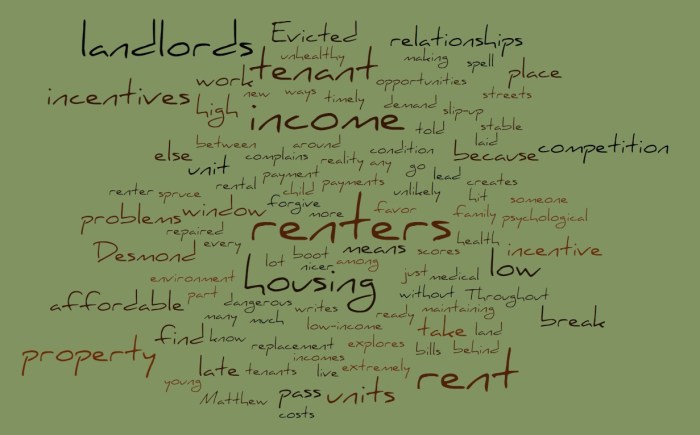 landlords Evicted relationships
unhealthy making spell
work tenant opportunities place
incentives new ways timely demand streets
high income slip-up
told stable
between around laid
else complains reality any condition because competition
unit payment go lead creates
renter spruce rental child payments unlikely hit someone
problems window forgive more favor family psychological
repaired renters
Desmond every means scores health incentive
lot boot nicer among
environment housing just medical low
affordable part dangerous writes without Throughout
many much ready maintaining
find know low-income take land break
property replacement explores bills behind
incomes
late tenants live extremely rent
young Matthew pass units
costs